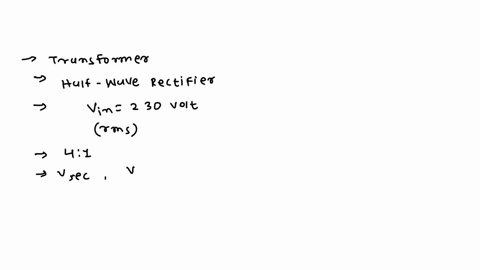 → Transformer
→ Half-Wave Rectifier
→ Vin = 230 volt
(rms)
→ 4:1
→ Vsec, V